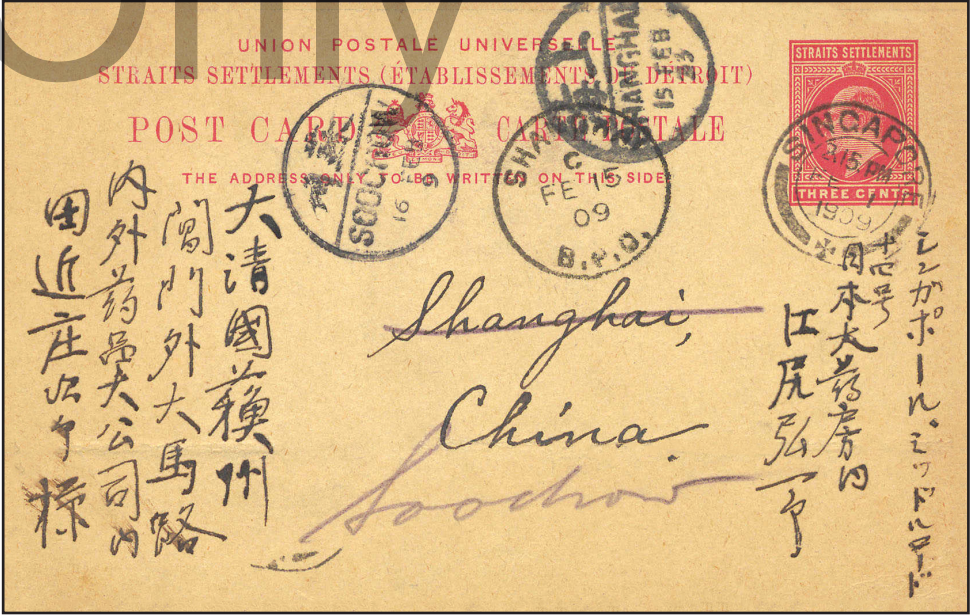 Only
UNION POSTALE UNIVERSELLE
STRAITS SETTLEMENTS (ÉTABLISSEMENTS DU DÉTROIT)
POST CARD CARTE POSTALE
THE ADDRESS ONLY TO BE WRITTEN ON THIS SIDE
STRAITS SETTLEMENTS
THREE CENTS
SINGAPORE
1909
SHANGHAI
15 FEB
SHANGHAI
C
FE 15
09
B.P.O.
SOOCHOW
16 FEB 9
Shanghai,
China
Soochow
シンガポールミッドルロード
十四号
日本大药房内
江尻弘一郎
大清國蘓州
閶門外大馬路
内外药品大公司内
田近庄次郎様